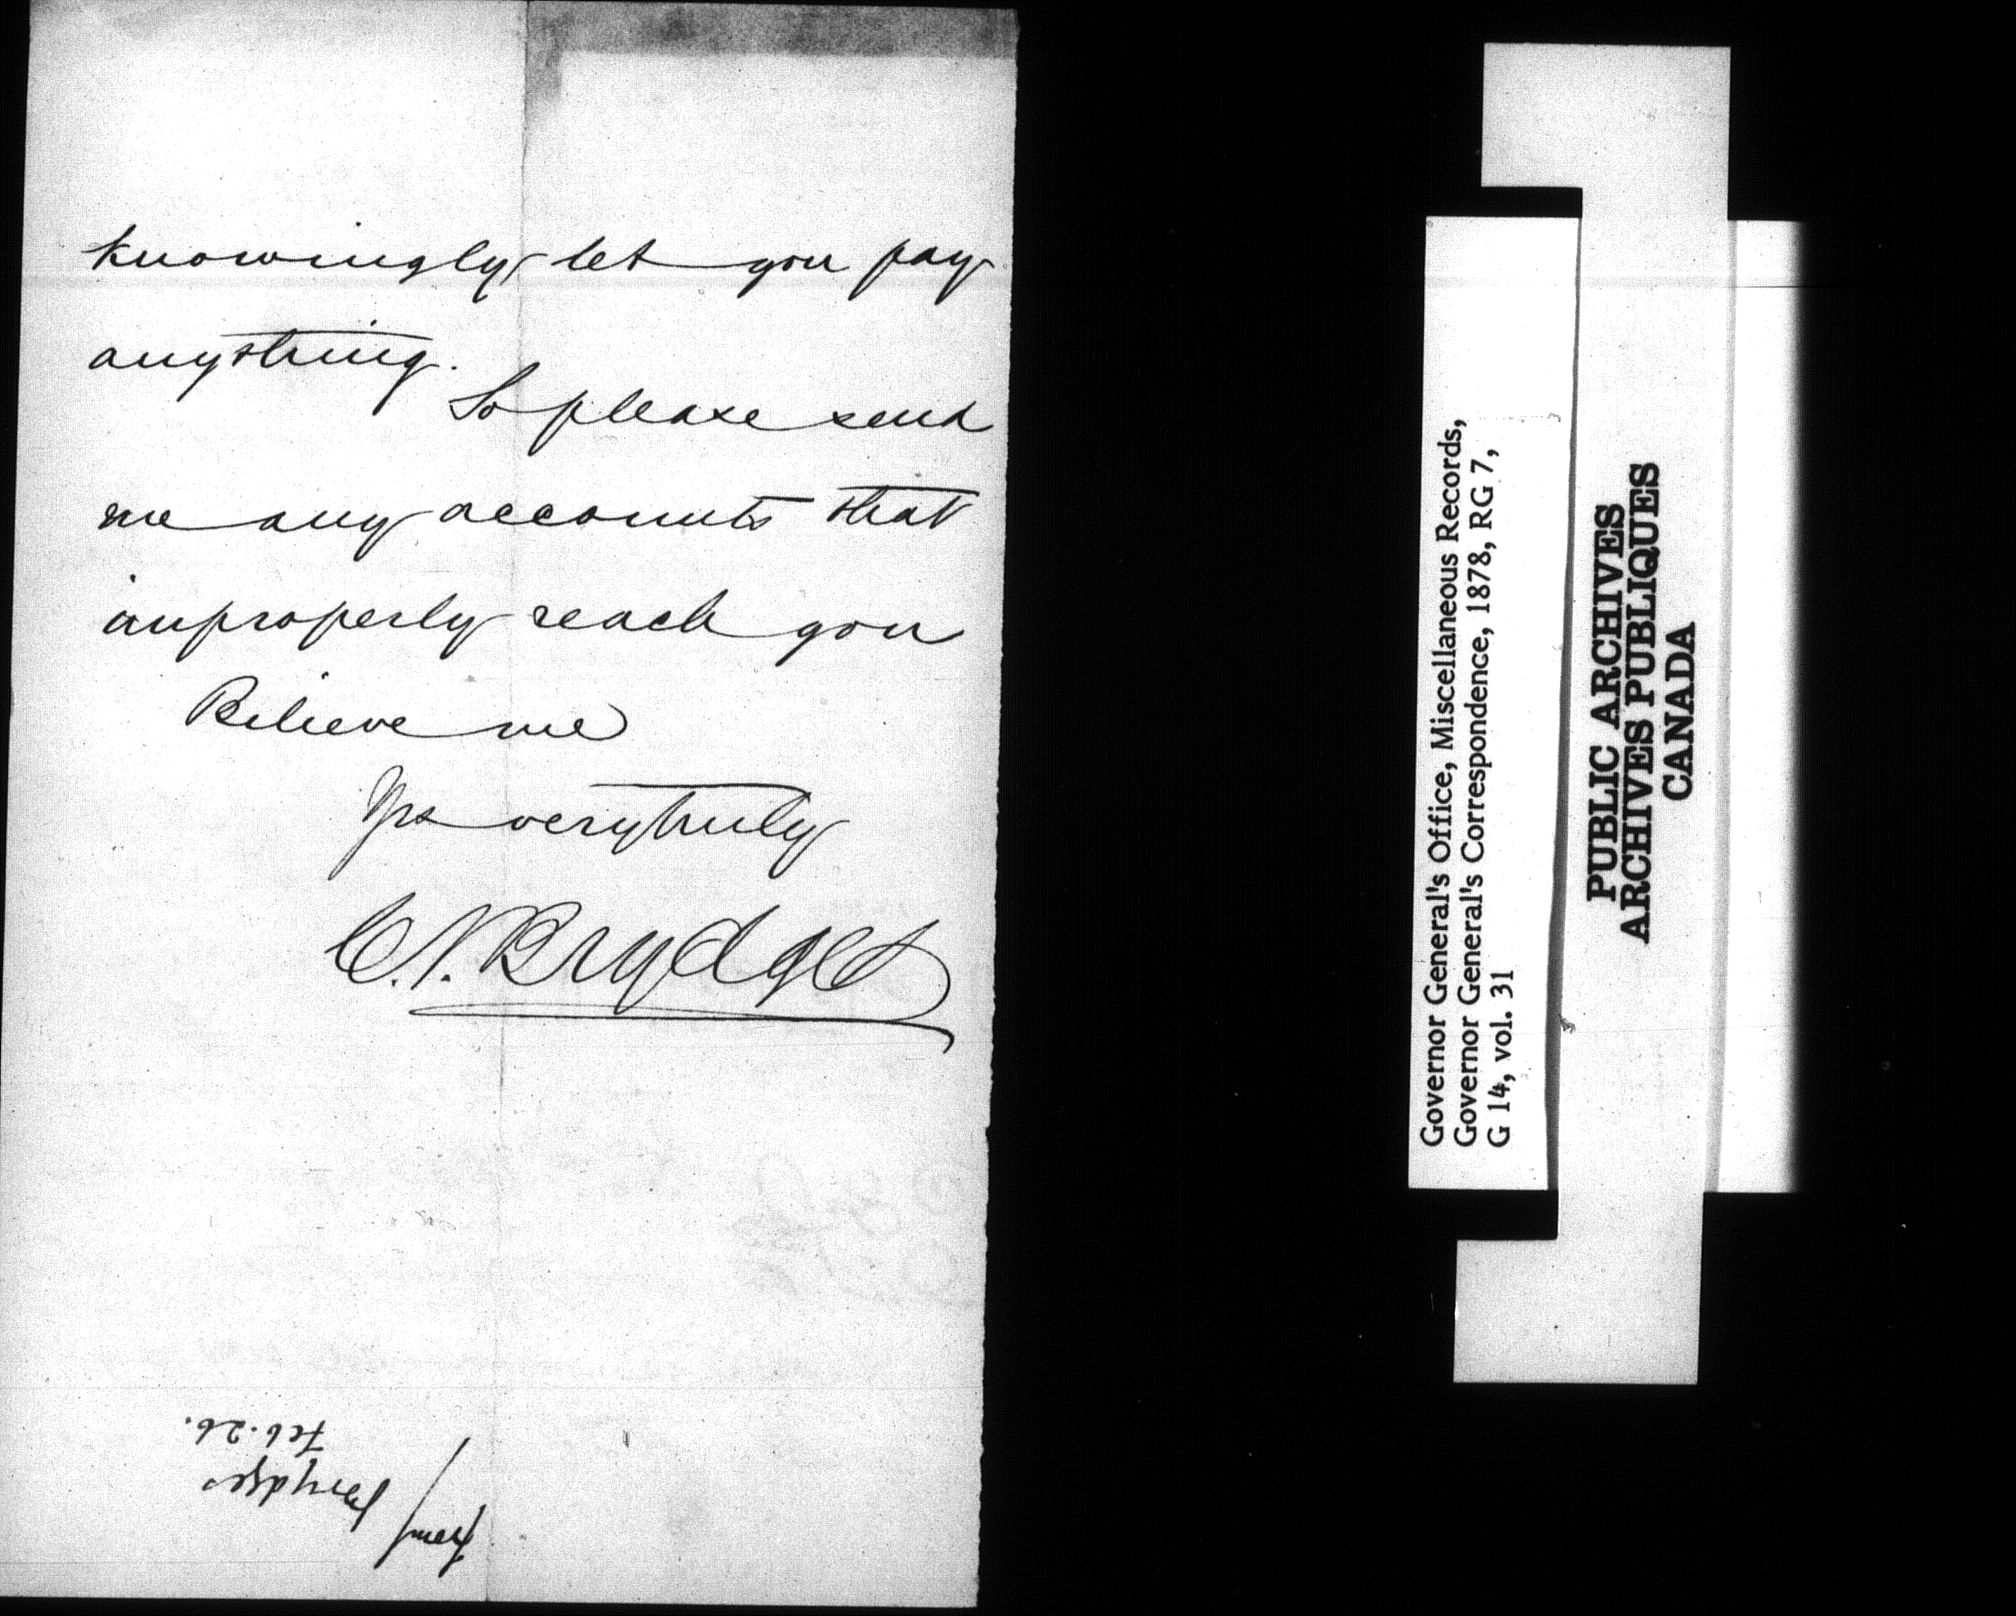 knowingly let you pay
anything.
So please send
me any accounts that
improperly reach you
Believe me
Yrs very truly
C.J. Brydges
Brydges
Feb. 26.
Governor General's Office, Miscellaneous Records,
Governor General's Correspondence, 1878, RG 7,
G 14, vol. 31
PUBLIC ARCHIVES
ARCHIVES PUBLIQUES
CANADA